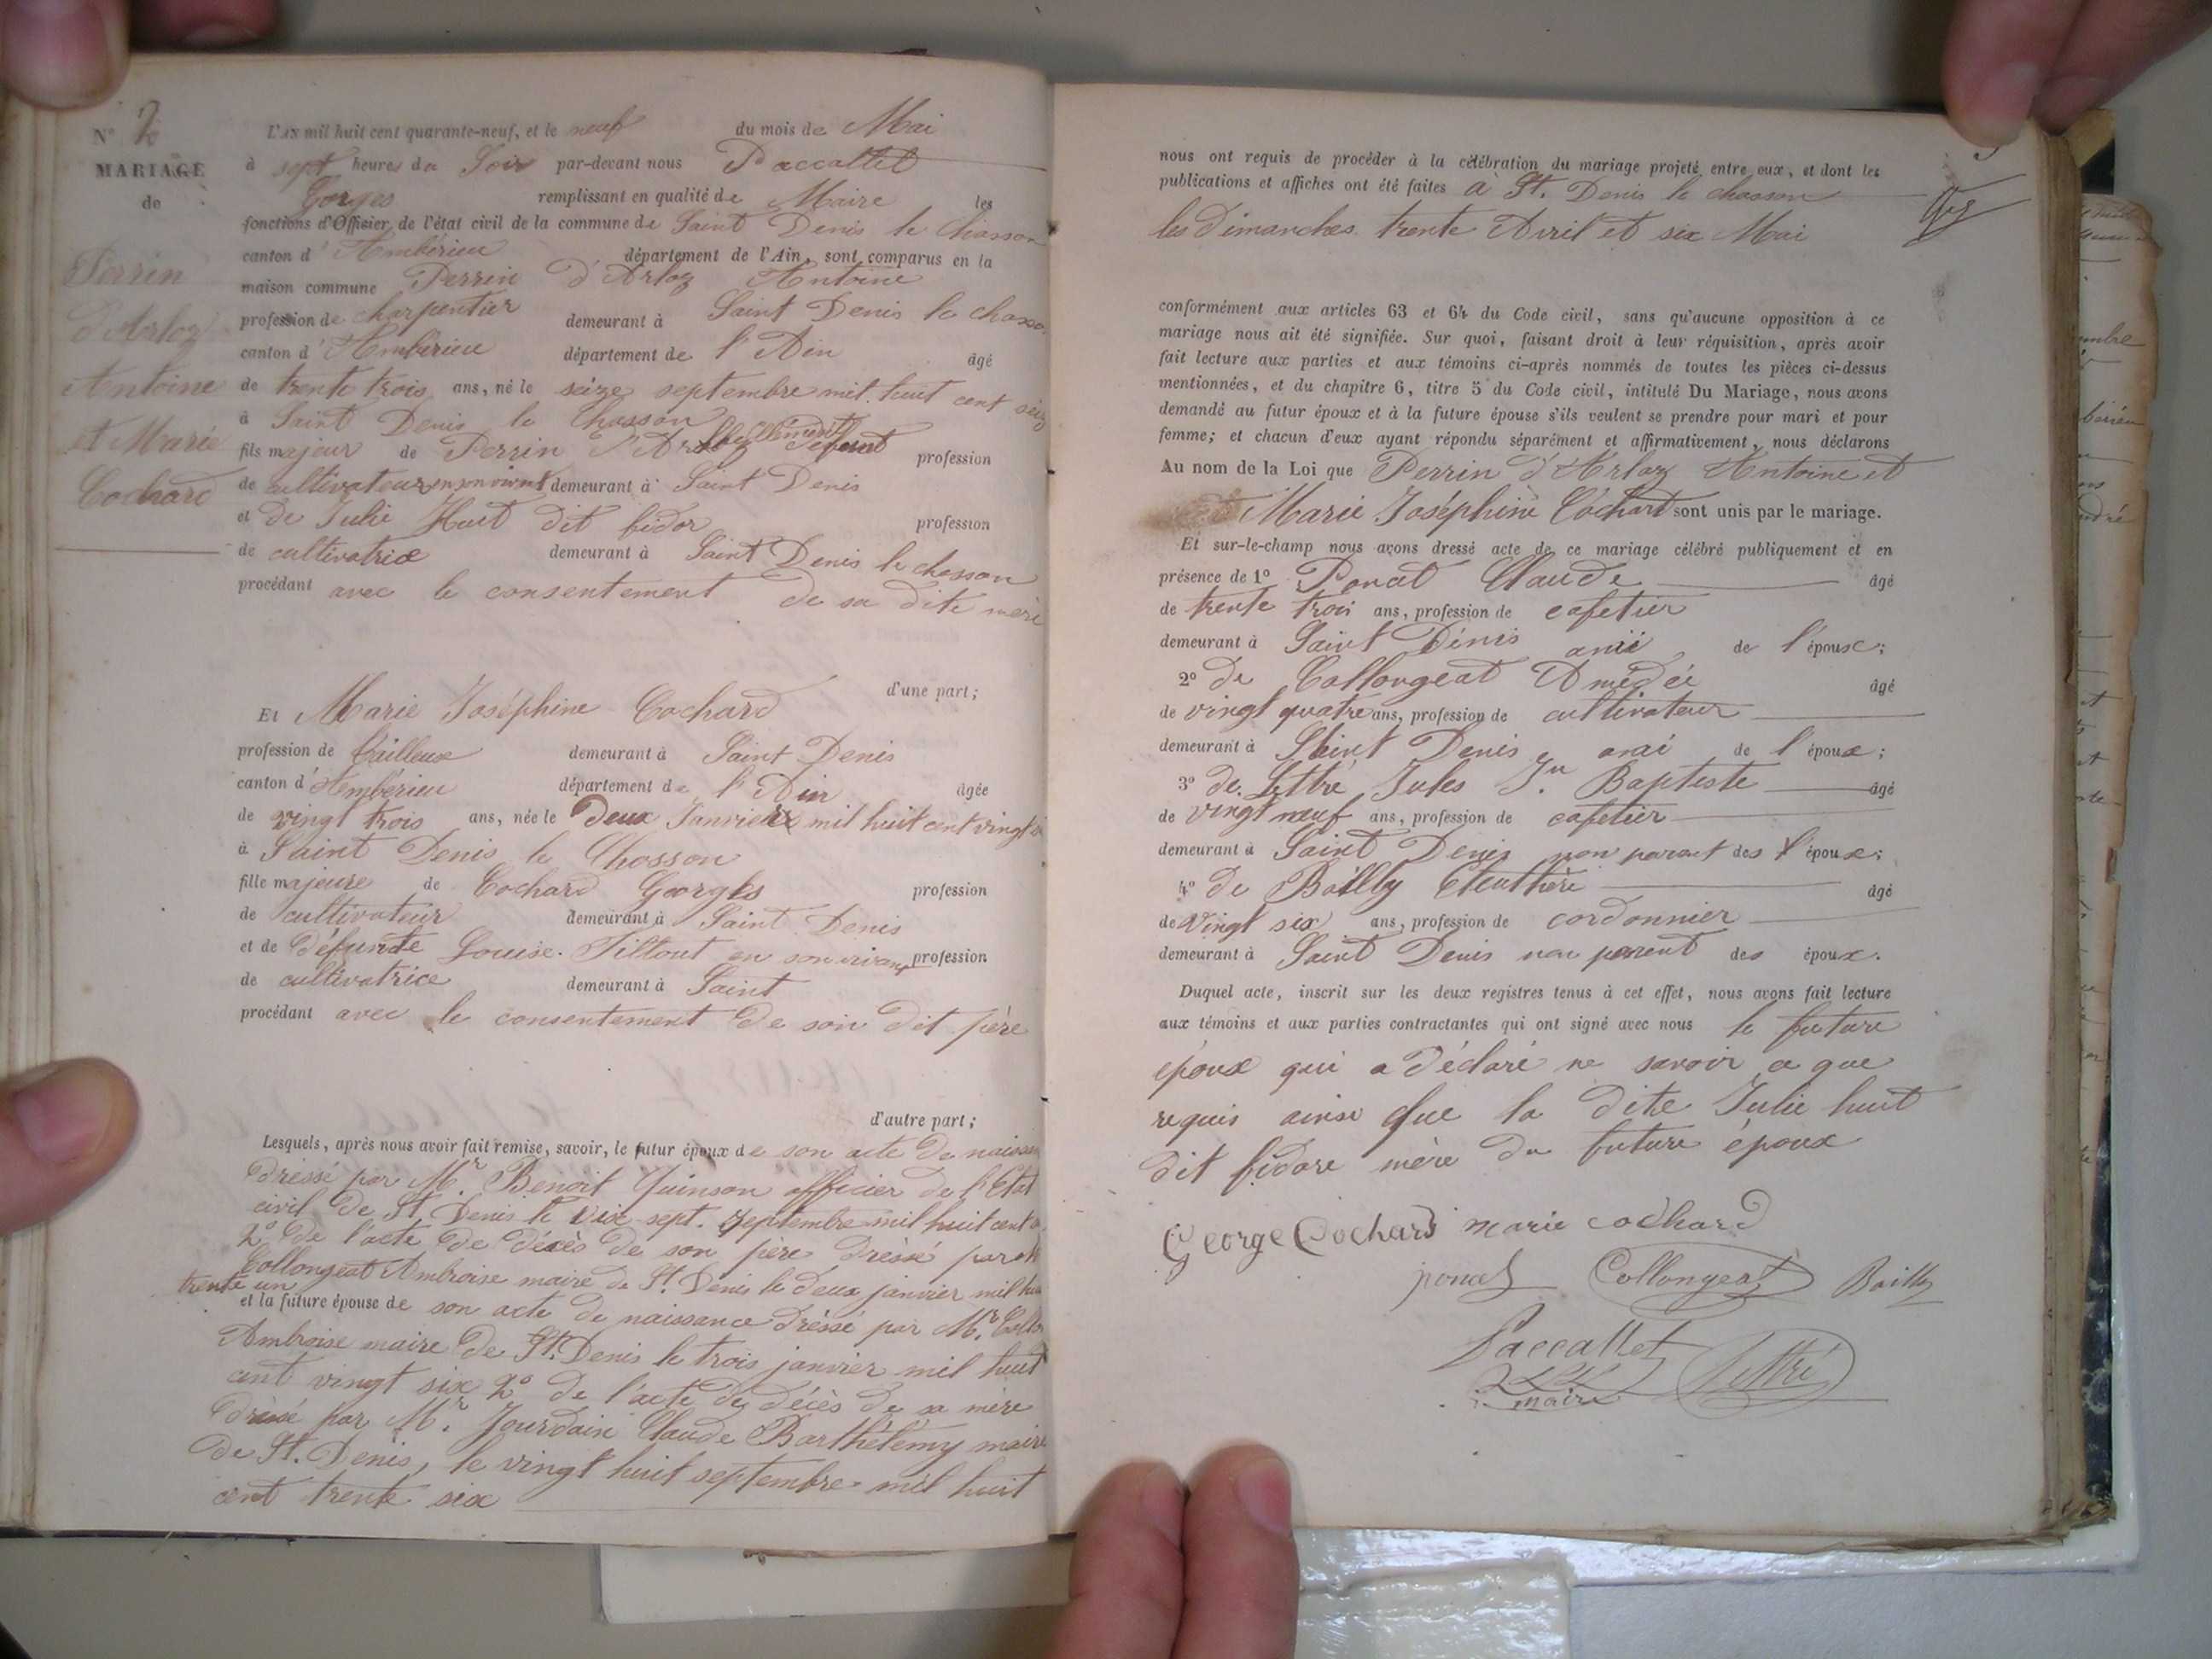 N° 2
MARIAGE
de
Perrin
d'Arloz
Antoine
et Marie
Cochard
L'AN mil huit cent quarante-neuf, et le neuf du mois de Mai
à sept heures du Soir par-devant nous Paccallet
Gorges remplissant en qualité de Maire les
fonctions d'Officier de l'état civil de la commune de Saint Denis le Chosson
canton d'Ambérieu département de l'Ain, sont comparus en la
maison commune Perrin d'Arloz Antoine
profession de charpentier demeurant à Saint Denis le chosso
canton d'Ambérieu département de l'Ain âgé
de trente trois ans, né le seize septembre mil huit cent seiz
à Saint Denis le Chosson
fils majeur de Perrin d'Arloz défunt profession
de cultivateur en son vivant demeurant à Saint Denis
et de Julie Huet dit fidor profession
de cultivatrice demeurant à Saint Denis le chosson
procédant avec le consentement de sa dite mère
d'une part;
Et Marie Joséphine Cochard
profession de tailleuse demeurant à Saint Denis
canton d'Ambérieu département de l'Ain âgée
de vingt trois ans, née le Deux Janvier mil huit cent vingt si
à Saint Denis le Chosson
fille majeure de Cochard Georges profession
de cultivateur demeurant à Saint Denis
et de défunte Louise Tiltout en son vivant profession
de cultivatrice demeurant à Saint
procédant avec le consentement de son dit père
d'autre part;
Lesquels, après nous avoir fait remise, savoir, le futur époux de son acte de naissan
dressé par Mr. Benoit Quinson officier de l'Etat
civil de St. Denis le dix sept Septembre mil huit cent s
2° de l'acte de décès de son père dréssé par M
Collongeat Ambroise maire de St. Denis le deux janvier mil hui
trente un
et la future épouse de son acte de naissance dréssé par Mr. Collo
Ambroise maire de St. Denis le trois janvier mil huit
cent vingt six 2° de l'acte de décès de sa mère
dréssé par Mr. Jourdain Claude Barthélémy maire
de St. Denis, le vingt huit septembre mil huit
cent trente six
nous ont requis de procéder à la célébration du mariage projeté entre eux, et dont les
publications et affiches ont été faites à St. Denis le chosson
les dimanches trente Avril et six Mai
conformément aux articles 63 et 64 du Code civil, sans qu'aucune opposition à ce
mariage nous ait été signifiée. Sur quoi, faisant droit à leur réquisition, après avoir
fait lecture aux parties et aux témoins ci-après nommés de toutes les pièces ci-dessus
mentionnées, et du chapitre 6, titre 5 du Code civil, intitulé Du Mariage, nous avons
demandé au futur époux et à la future épouse s'ils veulent se prendre pour mari et pour
femme; et chacun d'eux ayant répondu séparément et affirmativement, nous déclarons
Au nom de la Loi que Perrin d'Arloz Antoine et
Marie Joséphine Cochart sont unis par le mariage.
Et sur-le-champ nous avons dressé acte de ce mariage célébré publiquement et en
présence de 1° Ponat Claude âgé
de trente trois ans, profession de cafetier
demeurant à Saint Dénis ami de l'époux;
2° de Collongeat Amédée âgé
de vingt quatre ans, profession de cultivateur
demeurant à Saint Denis ami de l'époux;
3° de Littré Jules Jn. Baptiste âgé
de vingt neuf ans, profession de cafetier
demeurant à Saint Denis non parent des époux;
4° de Bailly Eleuthère âgé
de Vingt six ans, profession de cordonnier
demeurant à Saint Denis non parent des époux.
Duquel acte, inscrit sur les deux registres tenus à cet effet, nous avons fait lecture
aux témoins et aux parties contractantes qui ont signé avec nous le future
époux qui a déclaré ne savoir ce que
requis ainsi que la dite Julie huet
dit fidore mère du future époux
George Cochard marie cochard
ponat Collongeat Bailly
Paccallet Littré
maire